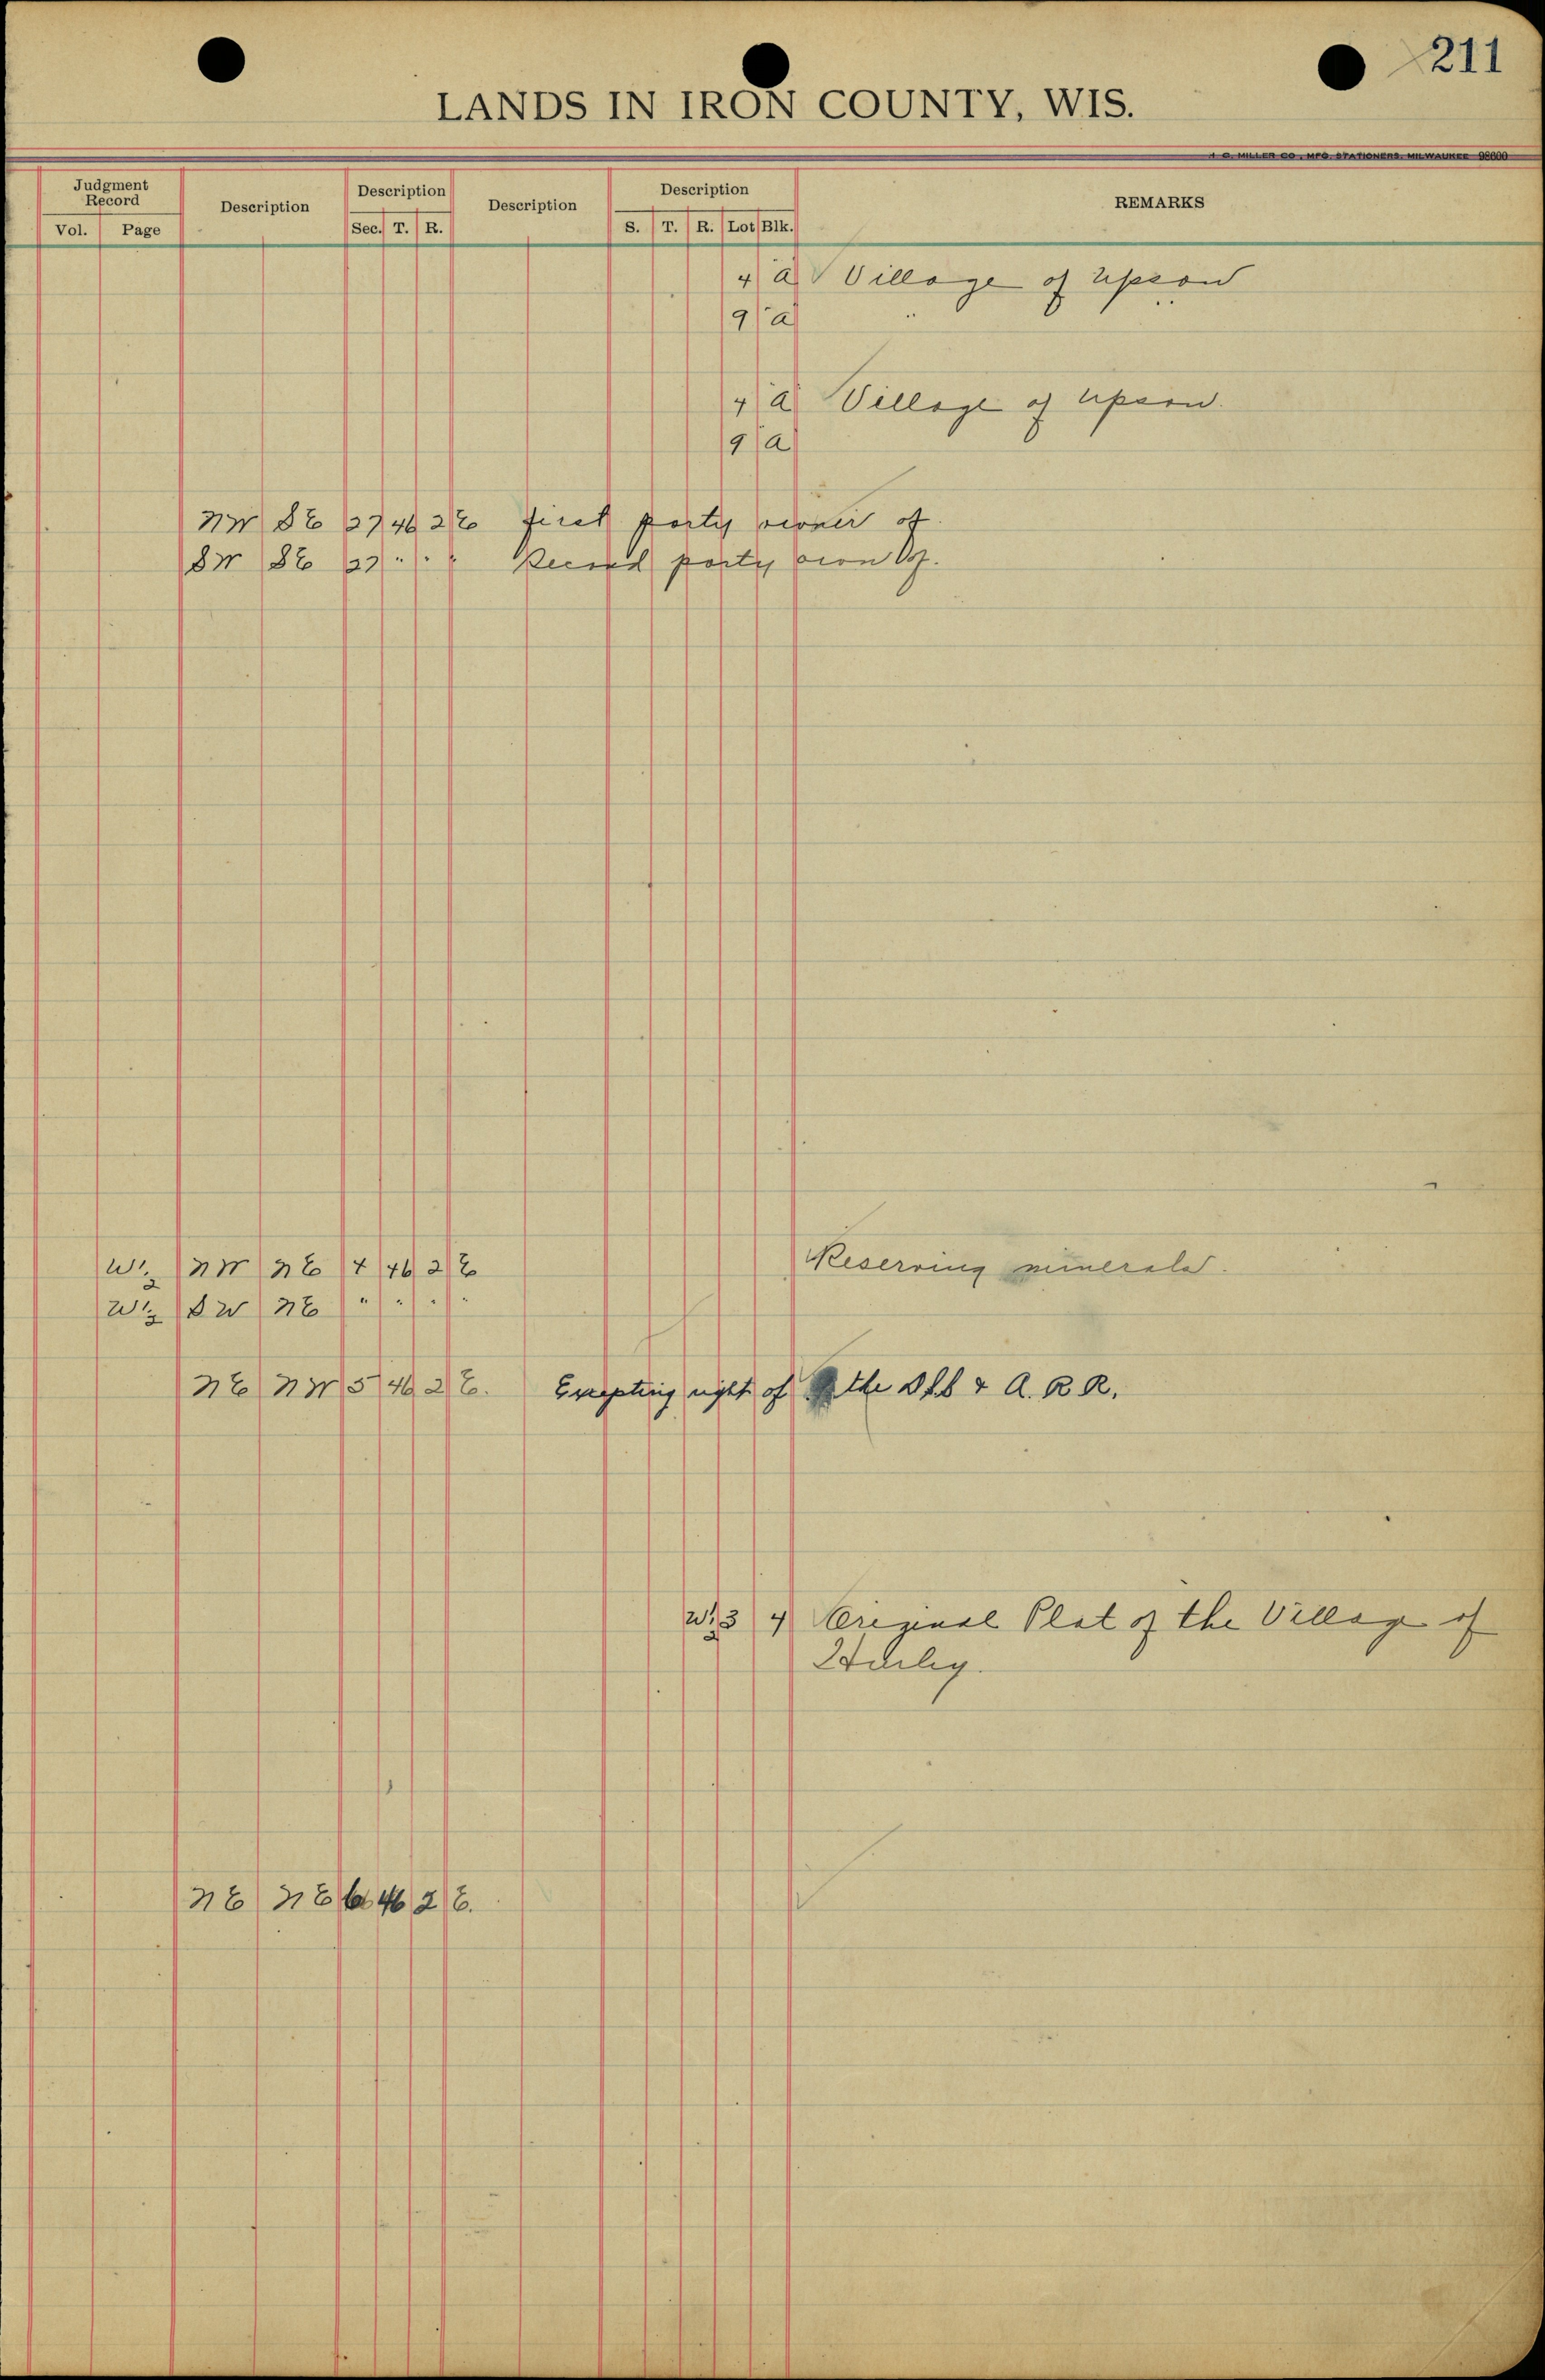 211
LANDS IN IRON COUNTY, WIS.
H. C. MILLER CO., MFG. STATIONERS, MILWAUKEE 98600
Judgment Record Description Description Description Description REMARKS
Vol. Page Sec. T. R. S. T. R. Lot Blk.
4 a Village of Upson
9 a "
4 a Village of Upson.
9 a
NW SE 27 46 2 E first party owner of
SW SE 27 " " " Second party own of.
W½ NW NE 4 46 2 E Reserving minerals.
W½ SW NE " " " "
NE NW 5 46 2 E. Excepting right of the & A. R R.
W½ 3 4 Original Plat of the Village of
Hurley.
NE NE 6 46 2 E.